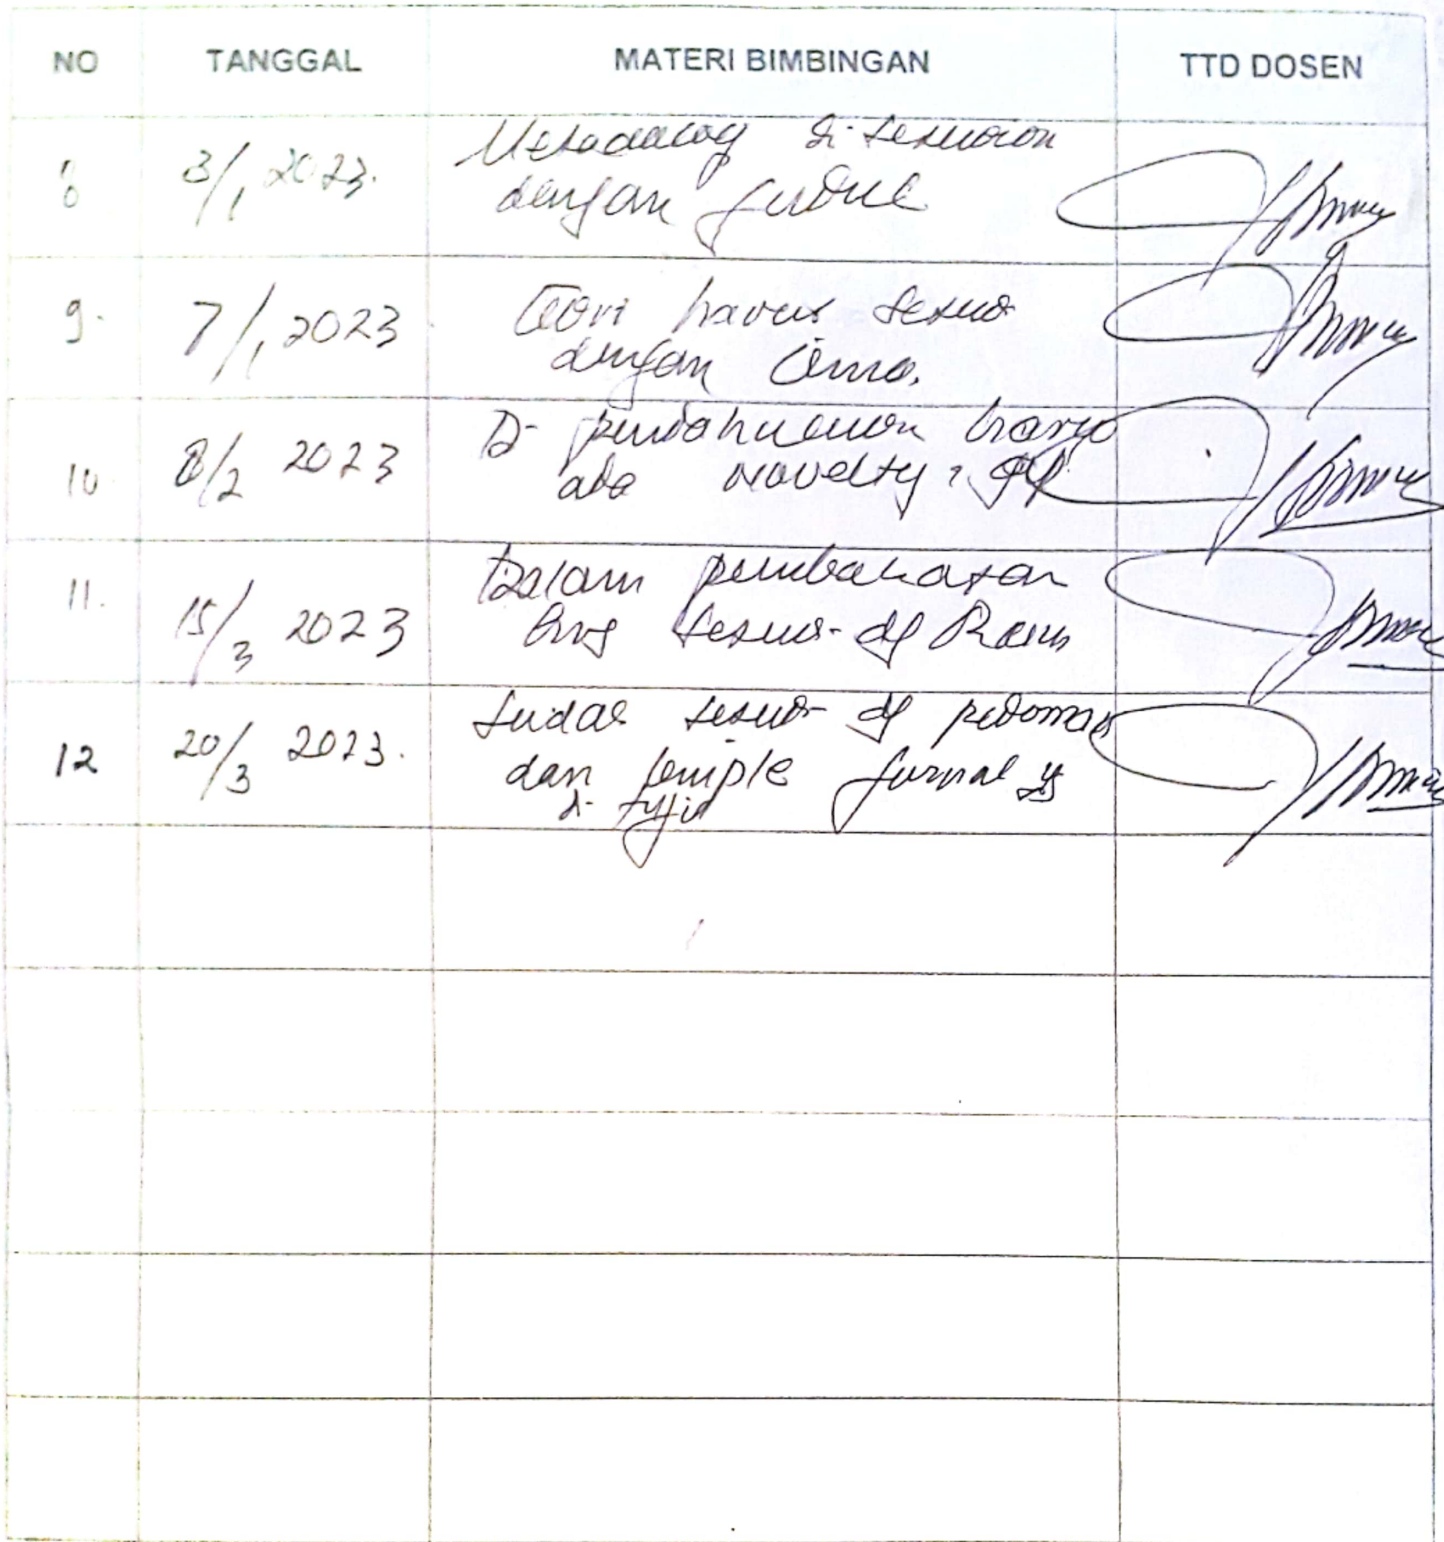 NO TANGGAL MATERI BIMBINGAN TTD DOSEN
8 3/1 2023. Metodologi di sesuaian
dengan judul
9. 7/1 2023. Teori harus sesuai
dengan tema.
10. 8/2 2023 Di pendahuluan harus
ada novelty,
11. 15/3 2023 Dalam pembahasan
hrs sesuai dg
12 20/3 2023. Sudah sesuai dg pedoman
dan temple jurnal yg
di tuju